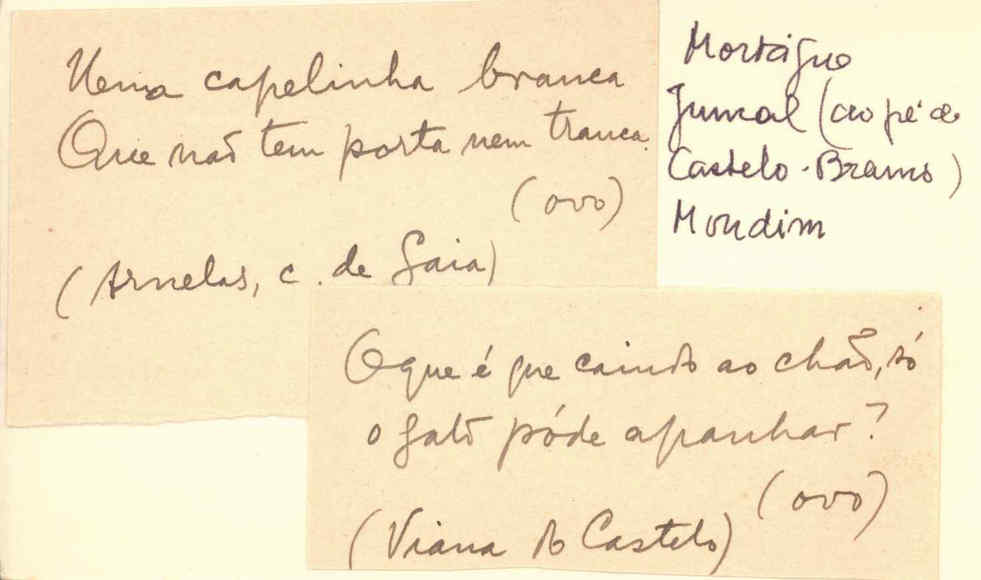 Uma capelinha branca
Que não tem porta nem tranca.
(ovo)
(Arnelas, c. de Gaia)
Mortágua
Juncal (ao pé de
Castelo-Branco)
Mondim
O que é que caindo ao chão, só
o gato póde apanhar?
(ovo)
(Viana do Castelo)